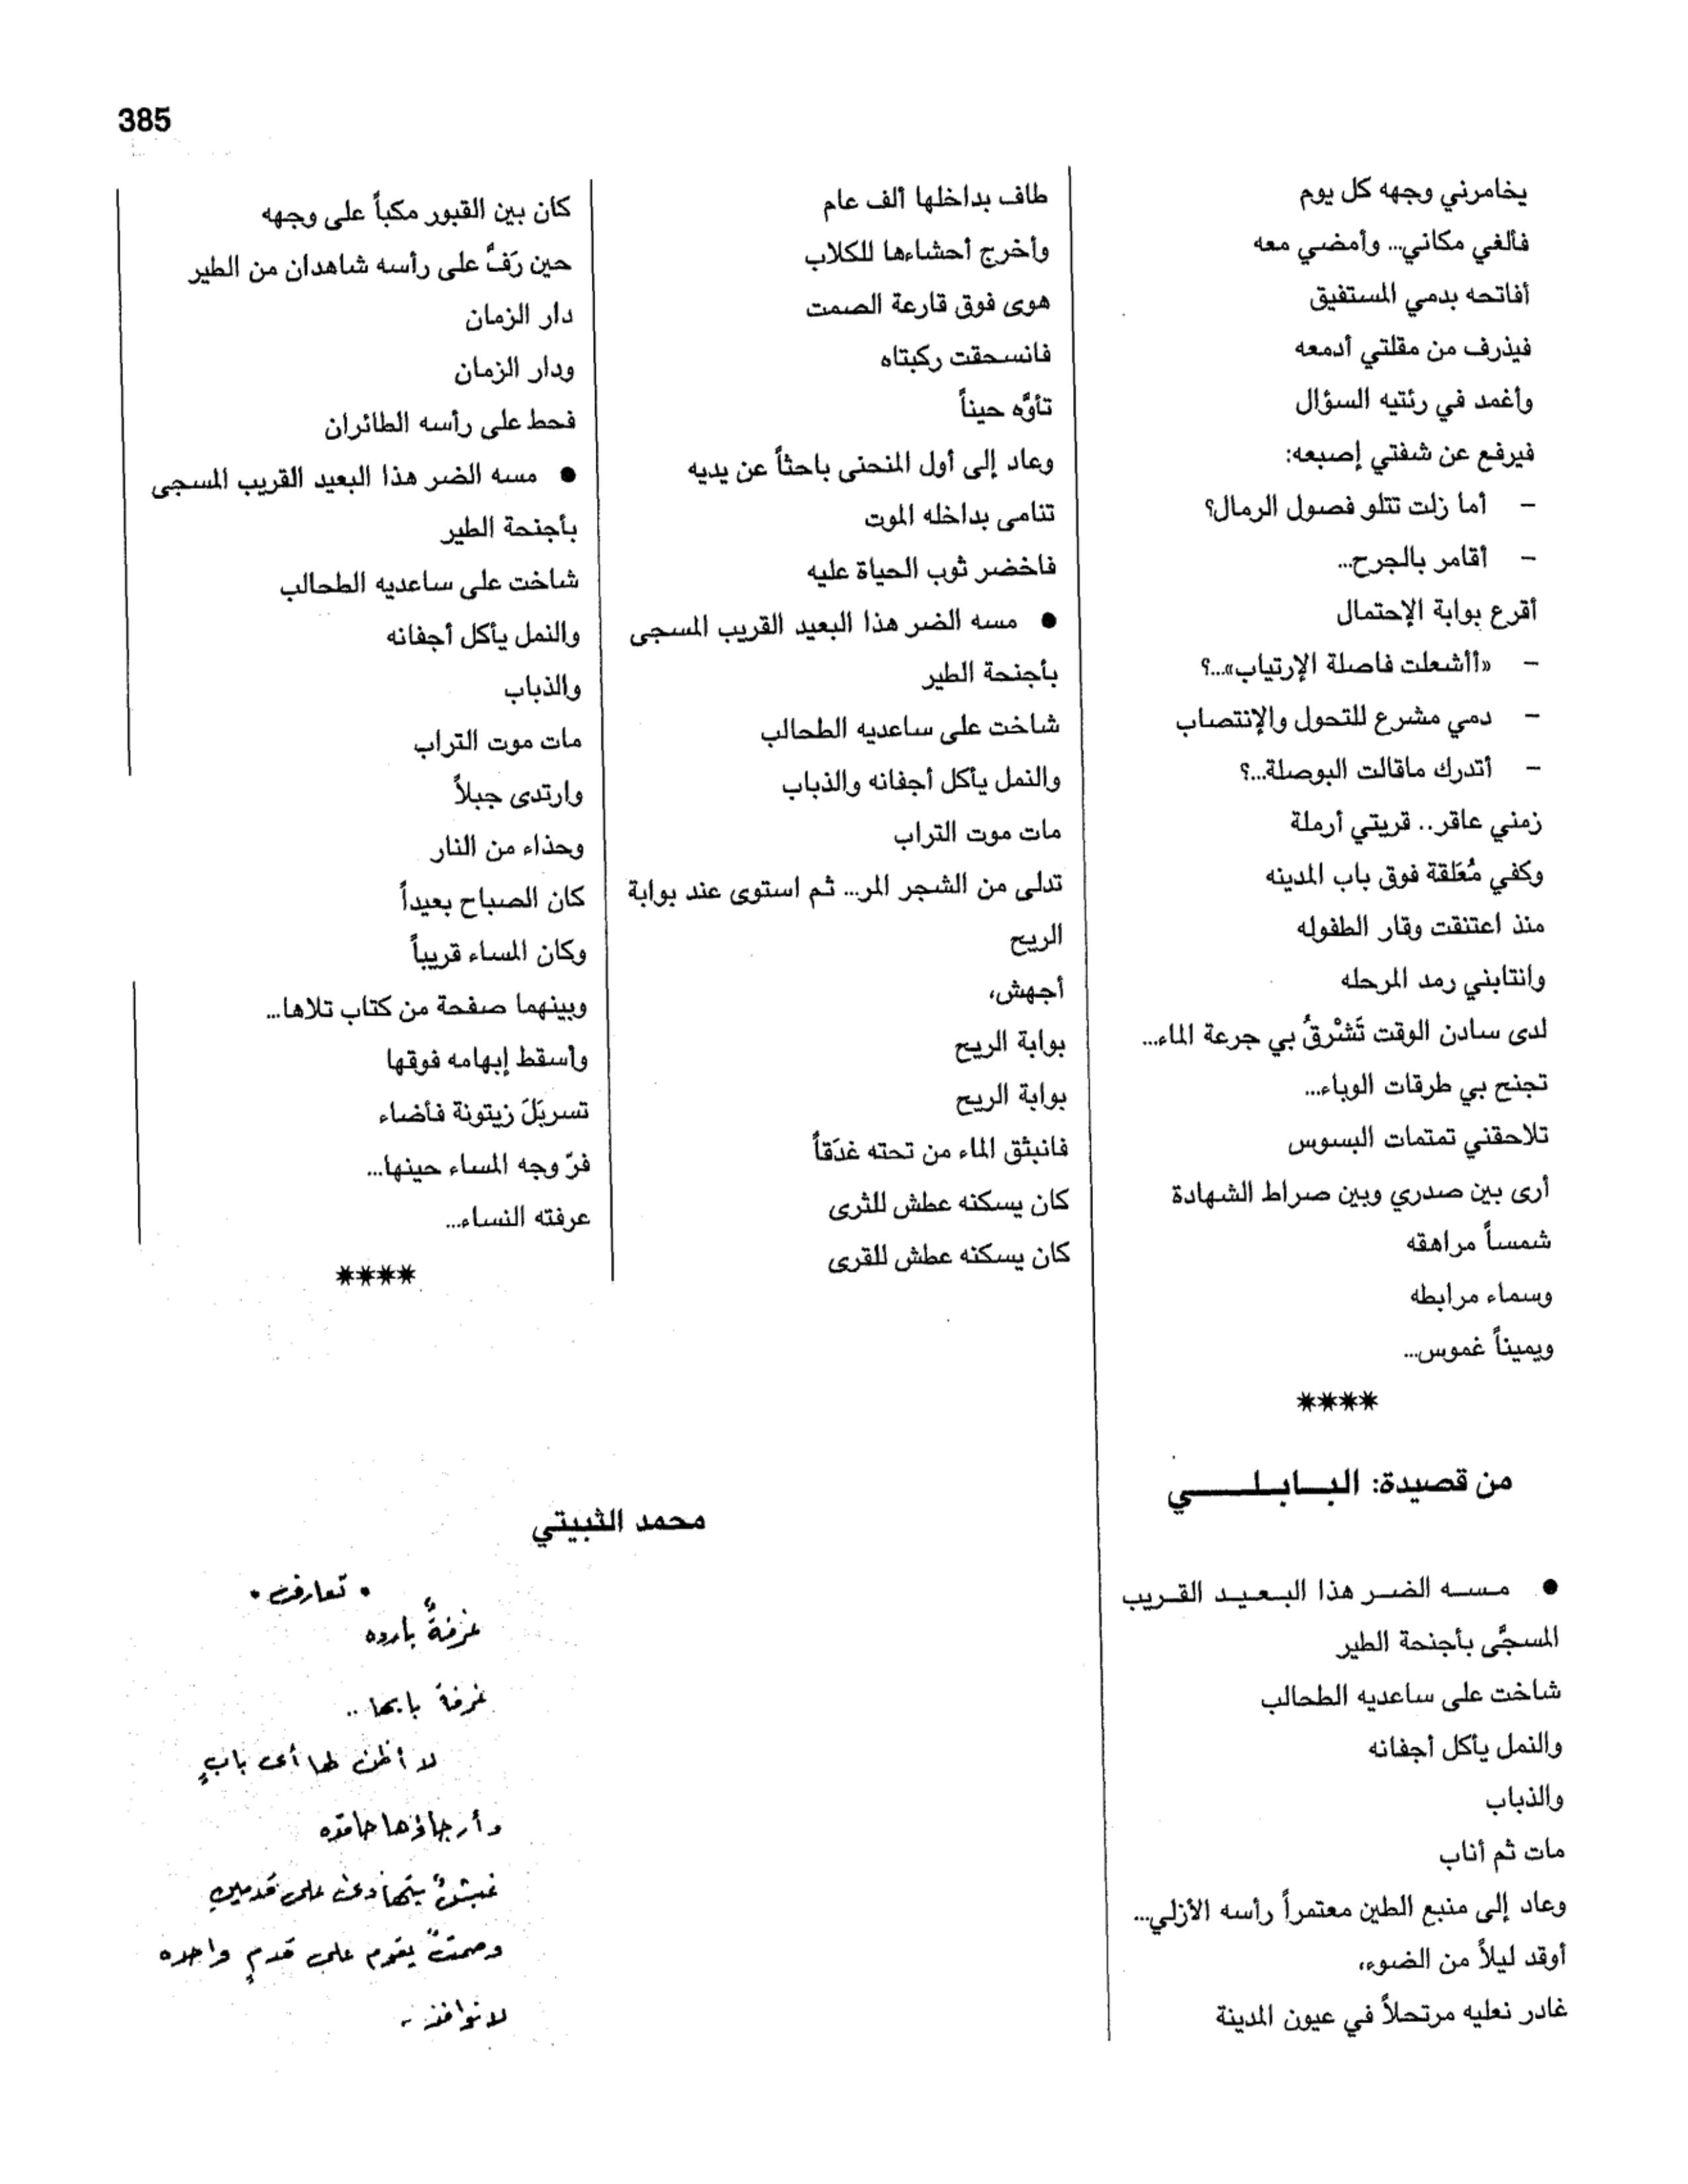 385
يخامرني وجهه كل يوم
فألغي مكاني... وأمضي معه
أفاتحه بدمي المستفيق
فيذرف من مقلتي أدمعه
وأغمد في رئتيه السؤال
فيرفع عن شفتي إصبعه:
– أما زلت تتلو فصول الرمال؟
– أقامر بالجرح...
أقرع بوابة الإحتمال
– «أأشعلت فاصلة الإرتياب»...؟
– دمي مشرع للتحول والإنتصاب
– أتدرك ماقالت البوصلة...؟
زمني عاقر.. قريتي أرملة
وكفي مُعَلقة فوق باب المدينه
منذ اعتنقت وقار الطفوله
وانتابني رمد المرحله
لدى سادن الوقت تَشْرقُ بي جرعة الماء...
تجنح بي طرقات الوباء...
تلاحقني تمتمات البسوس
أرى بين صدري وبين صراط الشهادة
شمساً مراهقه
وسماء مرابطه
ويميناً غموس...
****
من قصيدة: البـــابـلـــــي
● مـسـه الضـر هذا البـعـيـد القـريب
المسجَّى بأجنحة الطير
شاخت على ساعديه الطحالب
والنمل يأكل أجفانه
والذباب
مات ثم أناب
وعاد إلى منبع الطين معتمراً رأسه الأزلي...
أوقد ليلاً من الضوء،
غادر نعليه مرتحلاً في عيون المدينة
طاف بداخلها ألف عام
وأخرج أحشاءها للكلاب
هوى فوق قارعة الصمت
فانسحقت ركبتاه
تأوَّه حيناً
وعاد إلى أول المنحنى باحثاً عن يديه
تنامى بداخله الموت
فاخضر ثوب الحياة عليه
● مسه الضر هذا البعيد القريب المسجى
بأجنحة الطير
شاخت على ساعديه الطحالب
والنمل يأكل أجفانه والذباب
مات موت التراب
تدلى من الشجر المر... ثم استوى عند بوابة
الريح
أجهش،
بوابة الريح
بوابة الريح
فانبثق الماء من تحته غدَقاً
كان يسكنه عطش للثرى
كان يسكنه عطش للقرى
كان بين القبور مكباً على وجهه
حين رَفَّ على رأسه شاهدان من الطير
دار الزمان
ودار الزمان
فحط على رأسه الطائران
● مسه الضر هذا البعيد القريب المسجى
بأجنحة الطير
شاخت على ساعديه الطحالب
والنمل يأكل أجفانه
والذباب
مات موت التراب
وارتدى جبلاً
وحذاء من النار
كان الصباح بعيداً
وكان المساء قريباً
وبينهما صفحة من كتاب تلاها...
وأسقط إبهامه فوقها
تسربَلَ زيتونة فأضاء
فرّ وجه المساء حينها...
عرفته النساء...
****
محمد الثبيتي
• تعارف •
غرفةٌ بارده
غرفةٌ بابها ..
لا أظن لها أي بابٍ
وأرجاؤها حاقده
غبشٌ يتهادى على قدمين
وصمتٌ يقوم على قدمٍ واحده
لا نوافذ ..